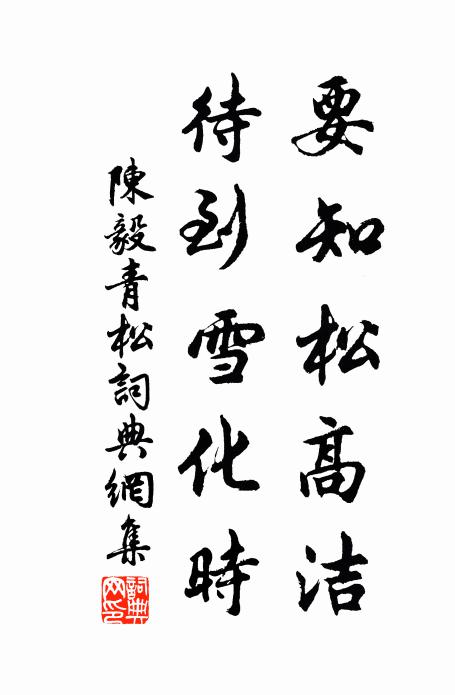 要知松高洁
待到雪化時
陳毅青松詞典網集
詞典网印